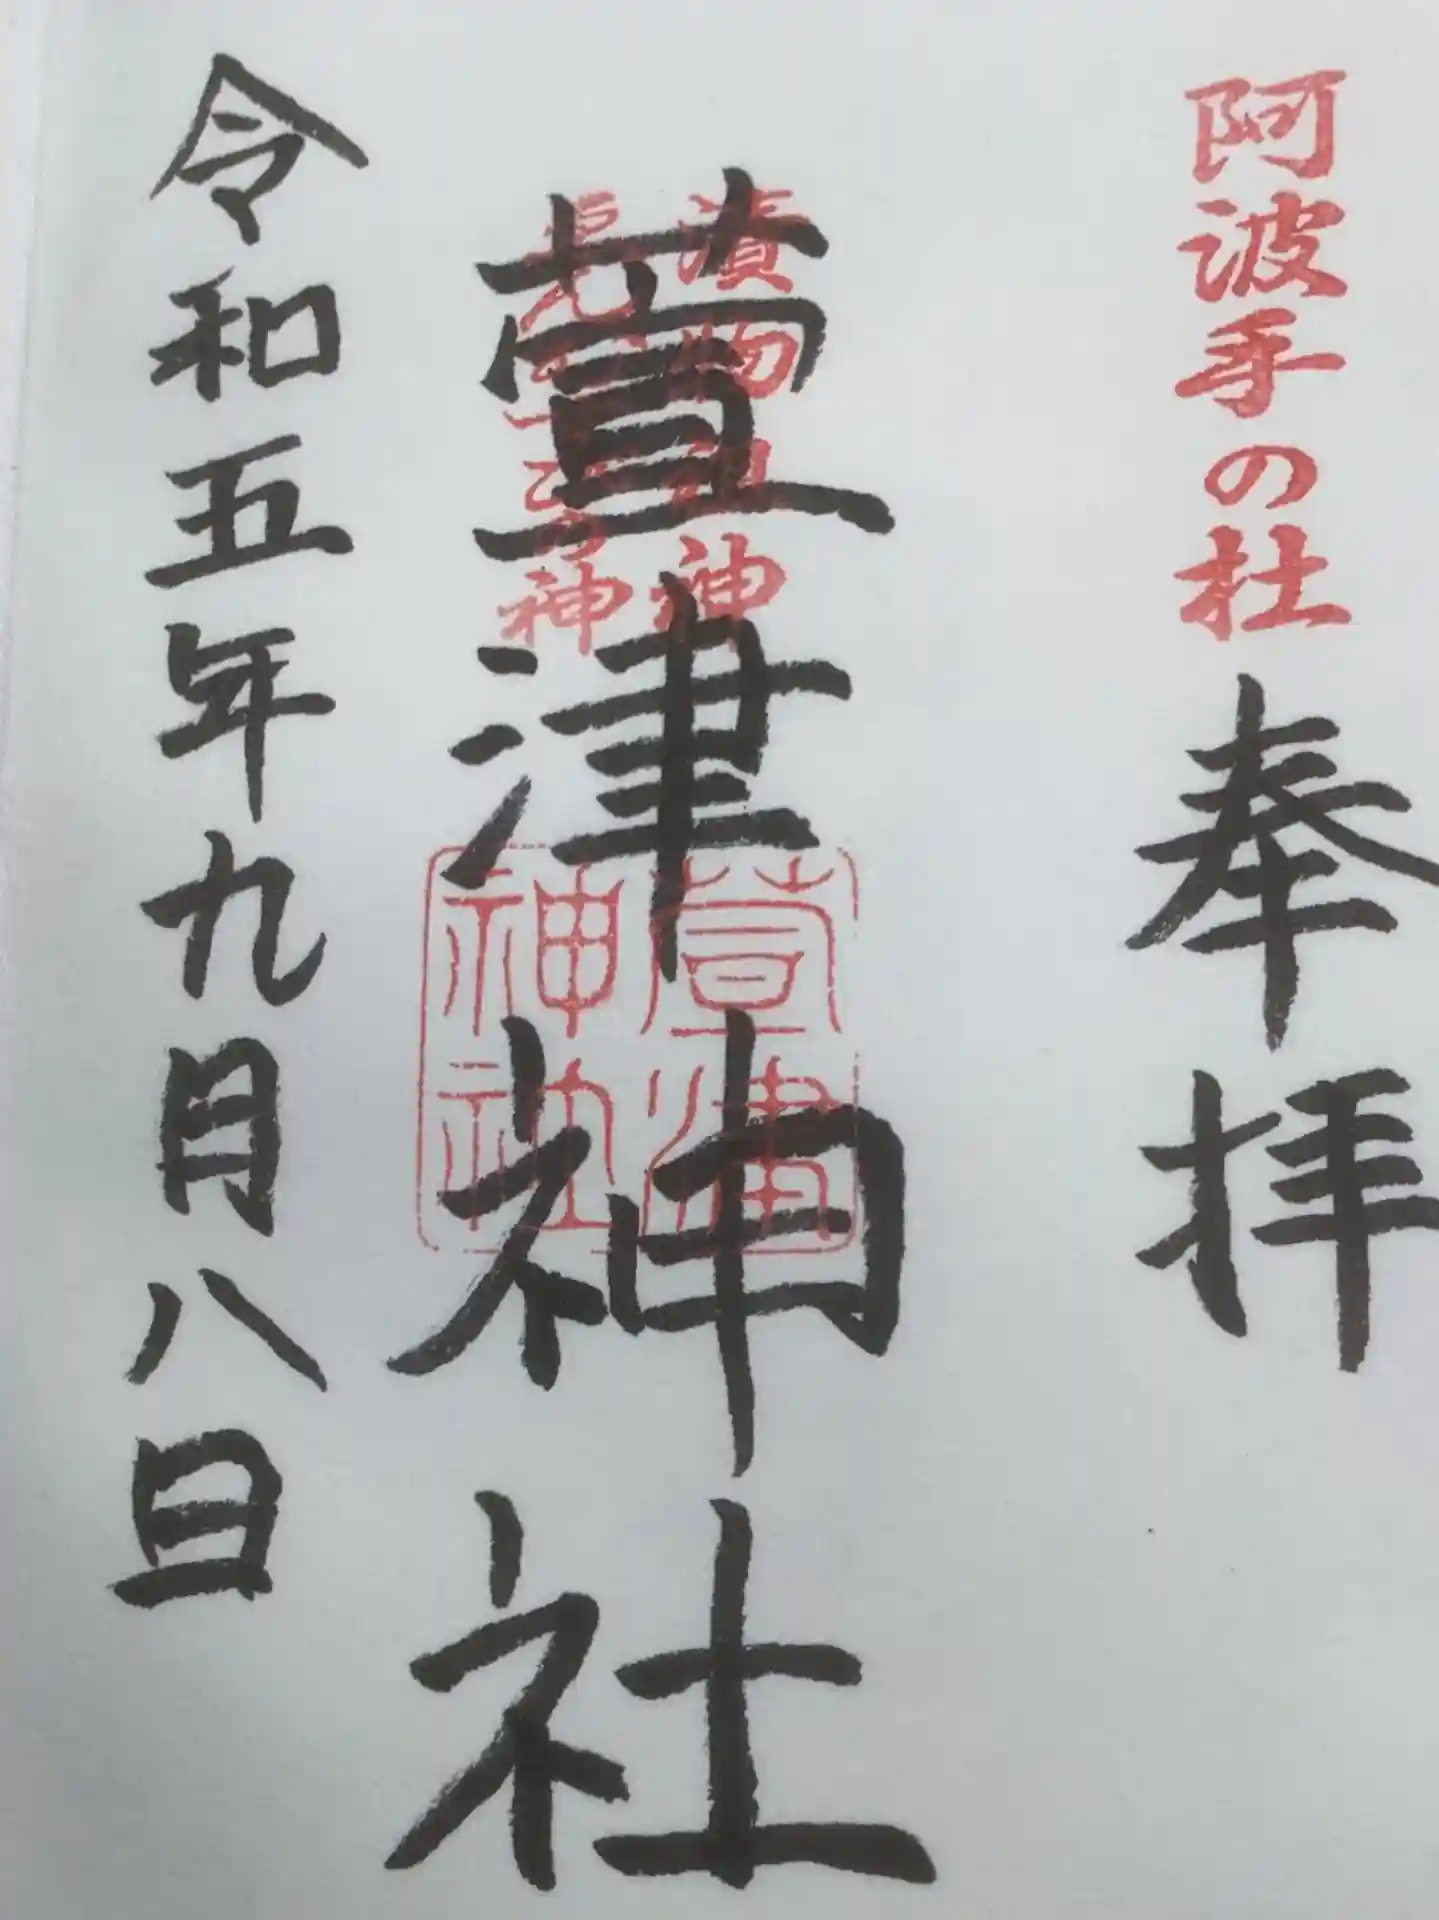 阿波手の杜
奉拝
漬物祖神
萱津神社
萱津神社
令和五年九月八日